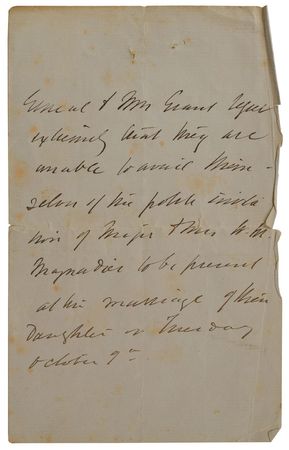 General & Mrs Grant regret
extremely that they are
unable to avail them-
selves of the polite invita-
tion of Major & Mrs W. M.
Maynadier to be present
at the marriage of their
Daughter on Tuesday
October 9th.